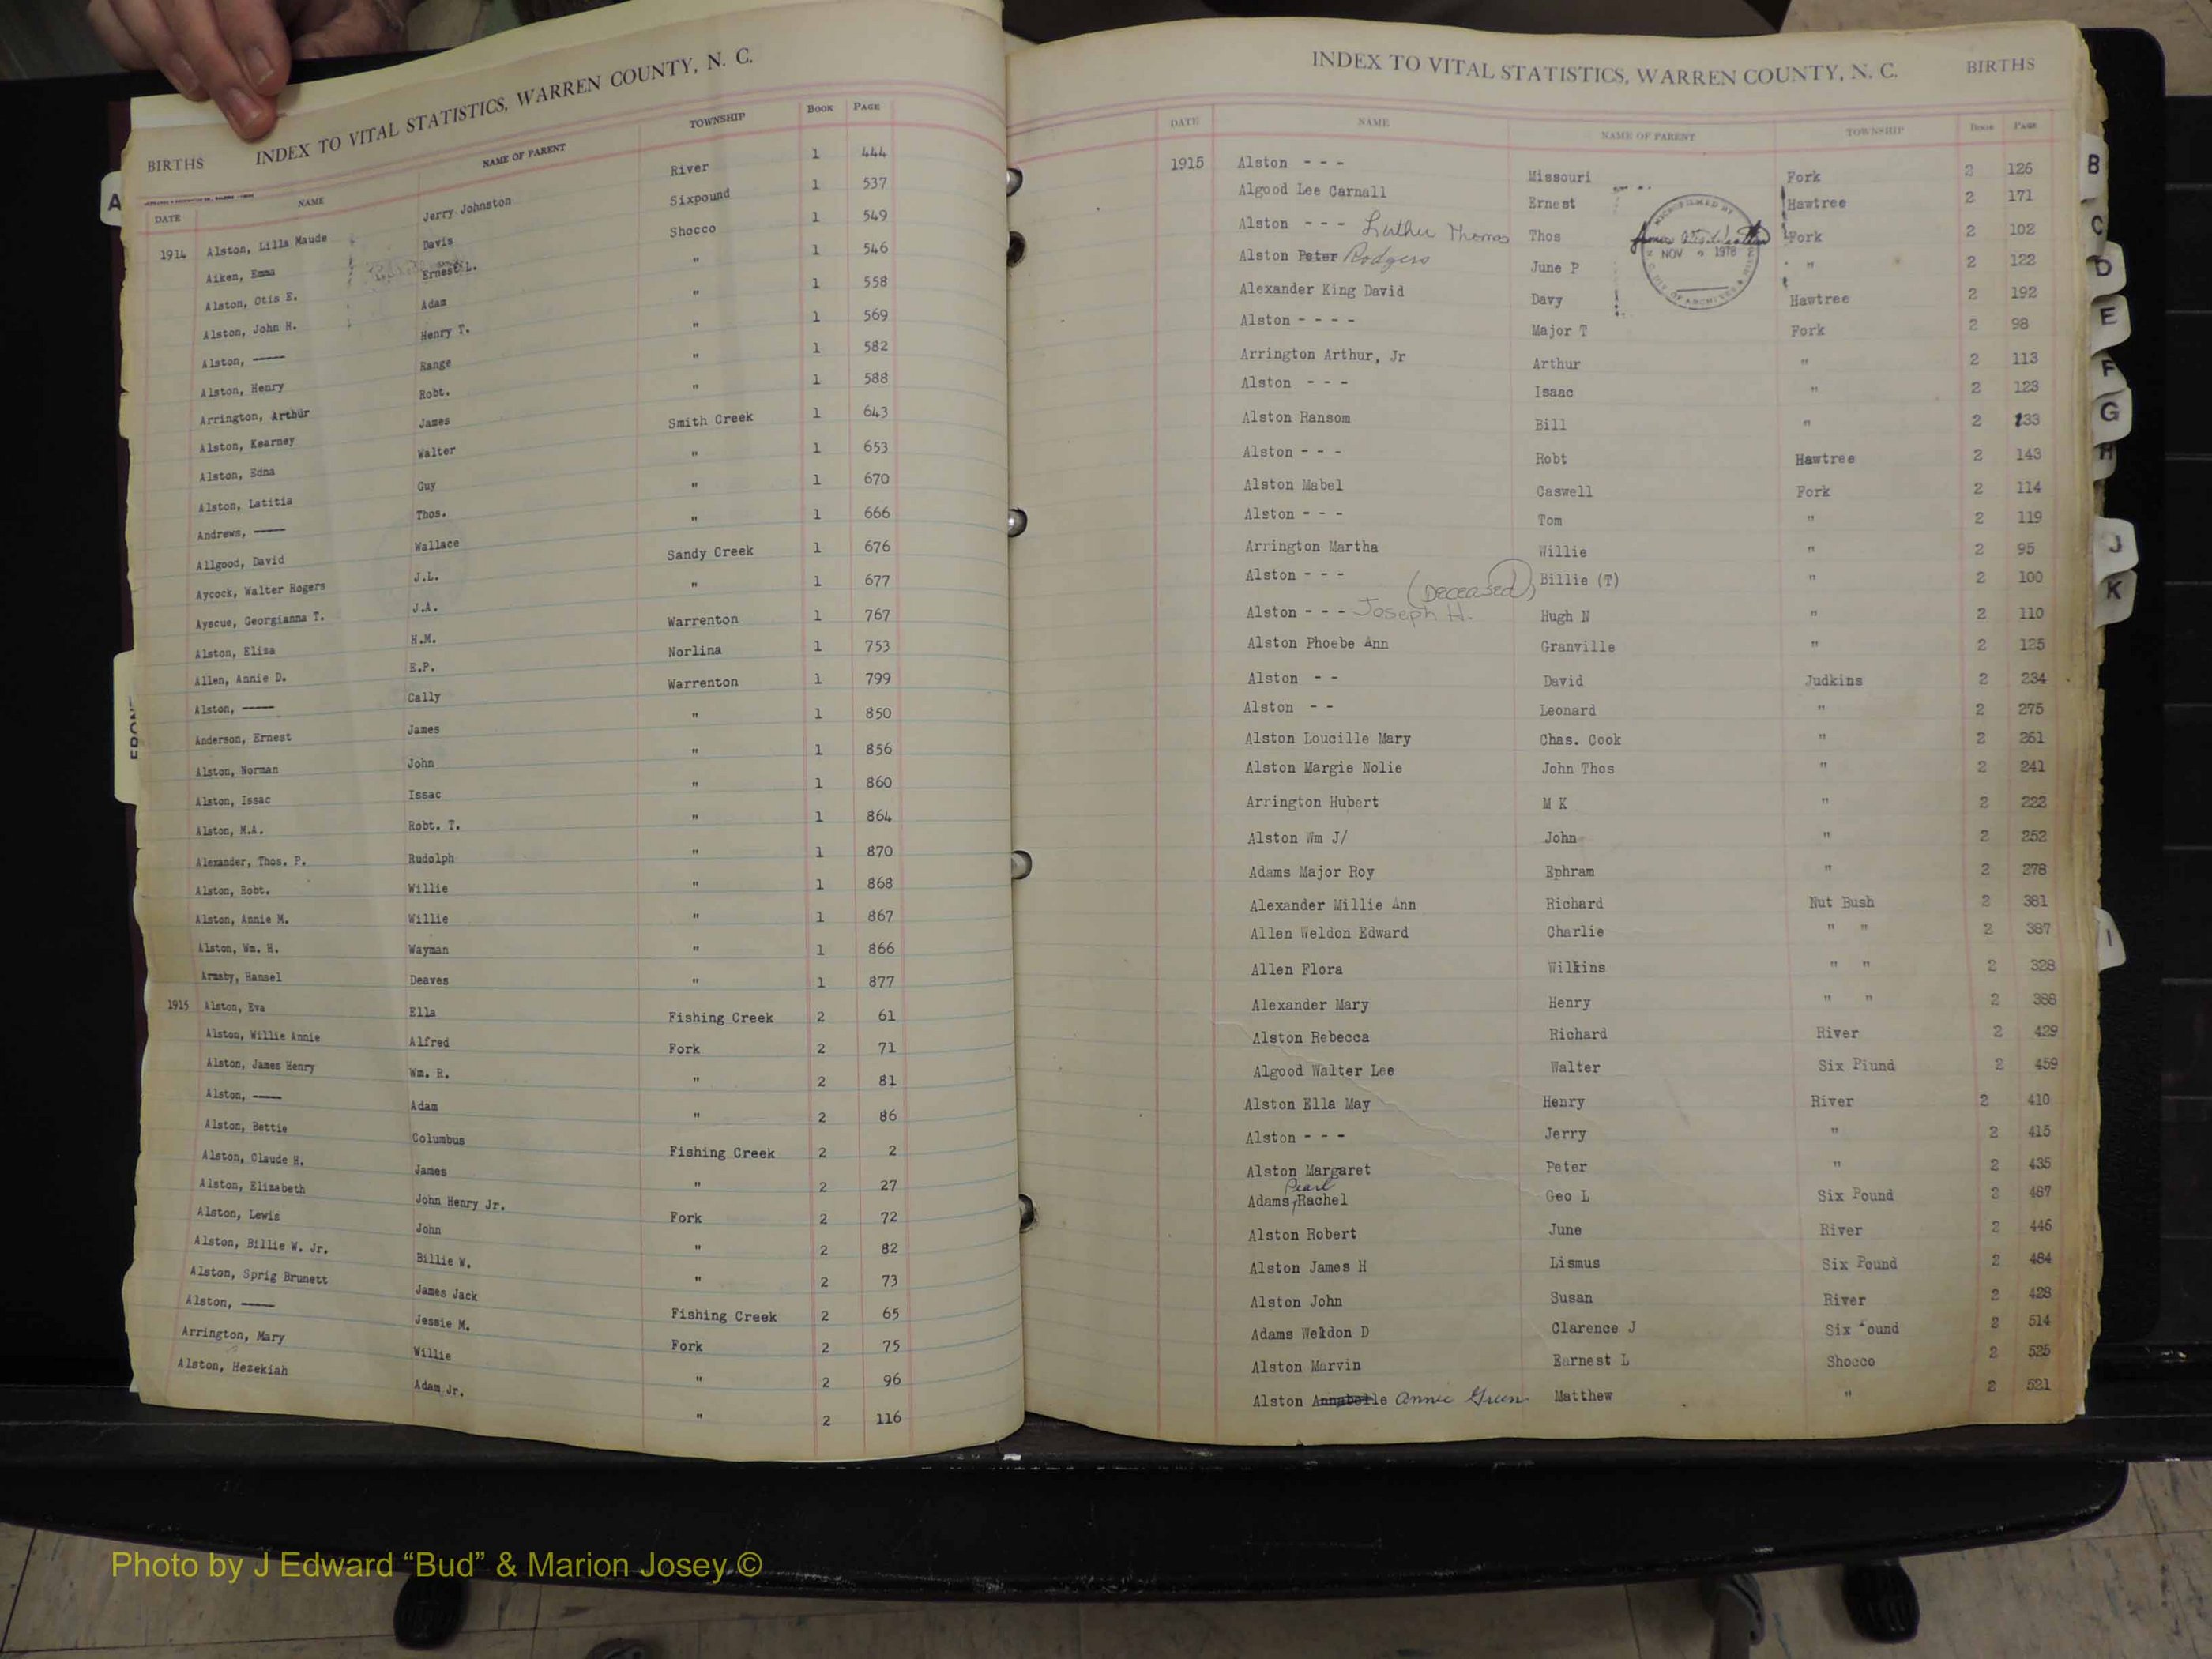 INDEX TO VITAL STATISTICS, WARREN COUNTY, N. C.
BIRTHS
DATE NAME NAME OF PARENT TOWNSHIP BOOK PAGE
1914 Alston, Lilla Maude Jerry Johnston River 1 444
Aiken, Emma Davis Sixpound 1 537
Alston, Otis E. Ernest L. Shocco 1 549
Alston, John H. Adam " 1 546
Alston, —— Henry T. " 1 558
Alston, Henry Range " 1 569
Arrington, Arthur Robt. " 1 582
Alston, Kearney James " 1 588
Alston, Edna Walter Smith Creek 1 643
Alston, Latitia Guy " 1 653
Andrews, —— Thos. " 1 670
Allgood, David Wallace " 1 666
Aycock, Walter Rogers J.L. Sandy Creek 1 676
Ayscue, Georgianna T. J.A. " 1 677
Alston, Eliza H.M. Warrenton 1 767
Allen, Annie D. E.P. Norlina 1 753
Alston, —— Cally Warrenton 1 799
Anderson, Ernest James " 1 850
Alston, Norman John " 1 856
Alston, Issac Issac " 1 860
Alston, M.A. Robt. T. " 1 864
Alexander, Thos. P. Rudolph " 1 870
Alston, Robt. Willie " 1 868
Alston, Annie M. Willie " 1 867
Alston, Wm. H. Wayman " 1 866
Armsby, Hansel Deaves " 1 877
1915 Alston, Eva Ella Fishing Creek 2 61
Alston, Willie Annie Alfred Fork 2 71
Alston, James Henry Wm. R. " 2 81
Alston, —— Adam " 2 86
Alston, Bettie Columbus Fishing Creek 2 2
Alston, Claude H. James " 2 27
Alston, Elizabeth John Henry Jr. Fork 2 72
Alston, Lewis John " 2 82
Alston, Billie W. Jr. Billie W. " 2 73
Alston, Sprig Brunett James Jack Fishing Creek 2 65
Alston, —— Jessie M. Fork 2 75
Arrington, Mary Willie " 2 96
Alston, Hezekiah Adam Jr. " 2 116
A
FRONT
INDEX TO VITAL STATISTICS, WARREN COUNTY, N. C. BIRTHS
DATE NAME NAME OF PARENT TOWNSHIP BOOK PAGE
1915 Alston - - - Missouri Fork 2 126
Algood Lee Carnall Ernest Hawtree 2 171
Alston - - - Luther Thomas Thos Fork 2 102
Alston Peter Rodgers June P " 2 122
Alexander King David Davy Hawtree 2 192
Alston - - - - Major T Fork 2 98
Arrington Arthur, Jr Arthur " 2 113
Alston - - - Isaac " 2 123
Alston Ransom Bill " 2 133
Alston - - - Robt Hawtree 2 143
Alston Mabel Caswell Fork 2 114
Alston - - - Tom " 2 119
Arrington Martha Willie " 2 95
Alston - - - (Deceased) Billie (T) " 2 100
Alston - - - Joseph H. Hugh N " 2 110
Alston Phoebe Ann Granville " 2 125
Alston - - David Judkins 2 234
Alston - - Leonard " 2 275
Alston Loucille Mary Chas. Cook " 2 261
Alston Margie Nolie John Thos " 2 241
Arrington Hubert M K " 2 222
Alston Wm J/ John " 2 252
Adams Major Roy Ephram " 2 278
Alexander Millie Ann Richard Nut Bush 2 381
Allen Weldon Edward Charlie " " 2 387
Allen Flora Wilkins " " 2 328
Alexander Mary Henry " " 2 388
Alston Rebecca Richard River 2 429
Algood Walter Lee Walter Six Piund 2 459
Alston Ella May Henry River 2 410
Alston - - - Jerry " 2 415
Alston Margaret Peter " 2 435
Pearl
Adams Rachel Geo L Six Pound 2 487
Alston Robert June River 2 446
Alston James H Lismus Six Pound 2 484
Alston John Susan River 2 428
Adams Weldon D Clarence J Six ound 2 514
Alston Marvin Earnest L Shocco 2 525
Alston Annabelle Annie Green Matthew " 2 521
MICROFILMED BY
NOV 9 1978
DIV. OF ARCHIVES
B
C
D
E
F
G
H
J
K
I
Photo by J Edward “Bud” & Marion Josey ©